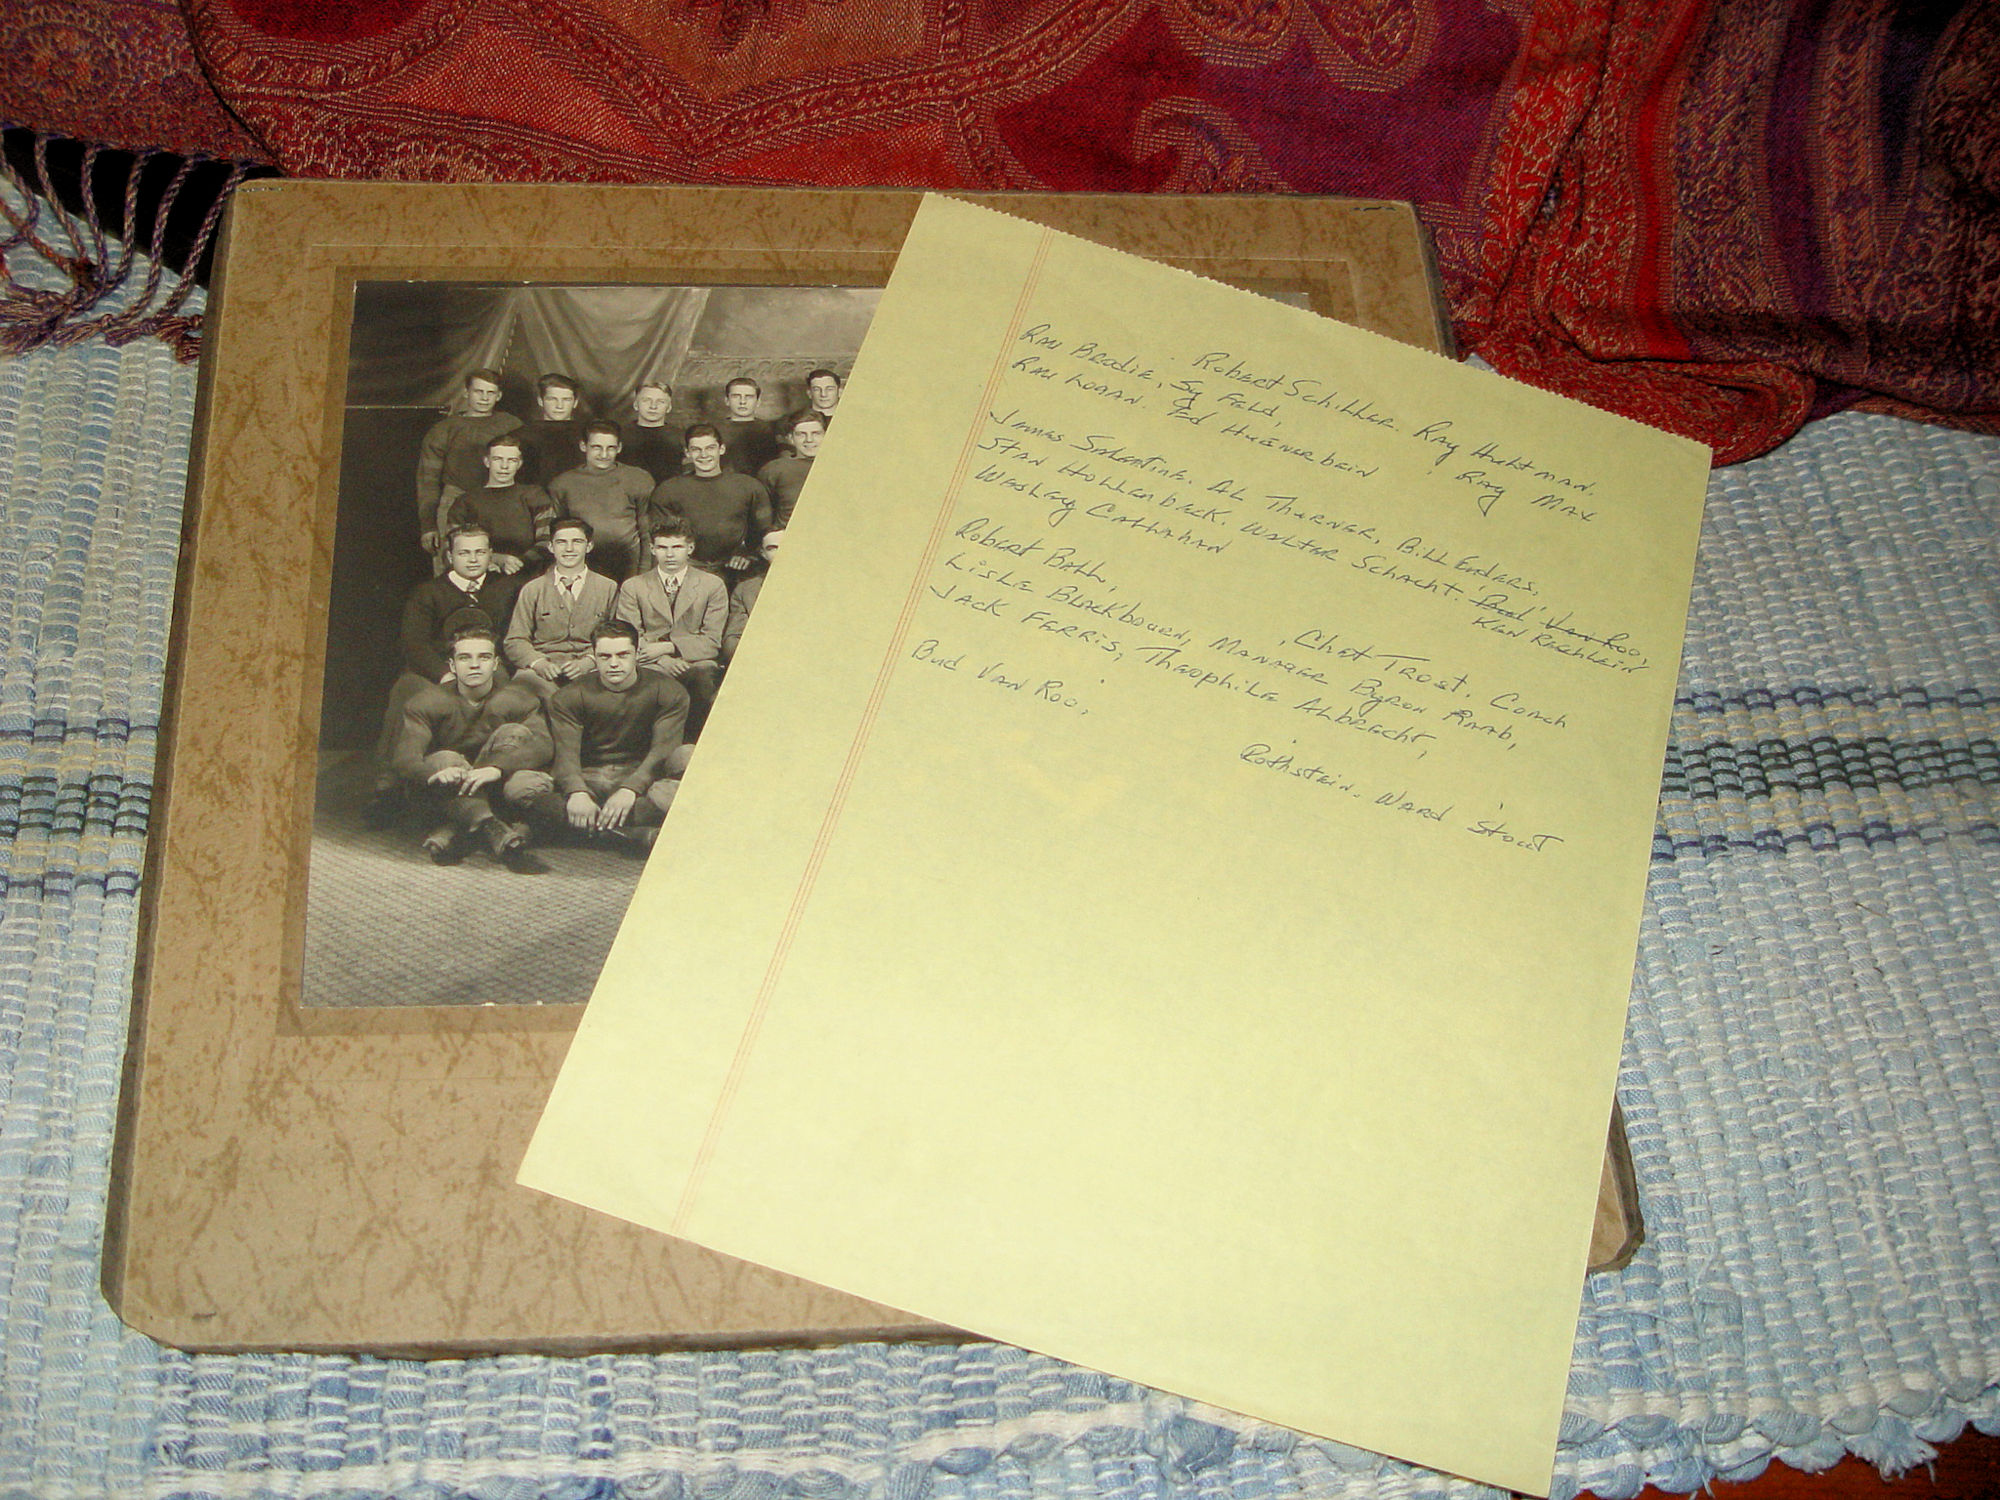 Ray Brodie, Sy Feld, Robert Schiller. Ray Huhtman.
Ray Logan. Ted Huenerbein, Ray Max
James Salentine. Al Thurner, Bill Enders,
Stan Hollenbeck. Walter Schacht. Paul Van Roo,
Wesley Callahan Ken Raehlein
Robert Ball, , Chet Trost. Coach
Lisle Blackbourn, Manager Byron Raab,
Jack Ferris, Theophile Albrecht,
Bud Van Roo, Rothstein. Ward Stout